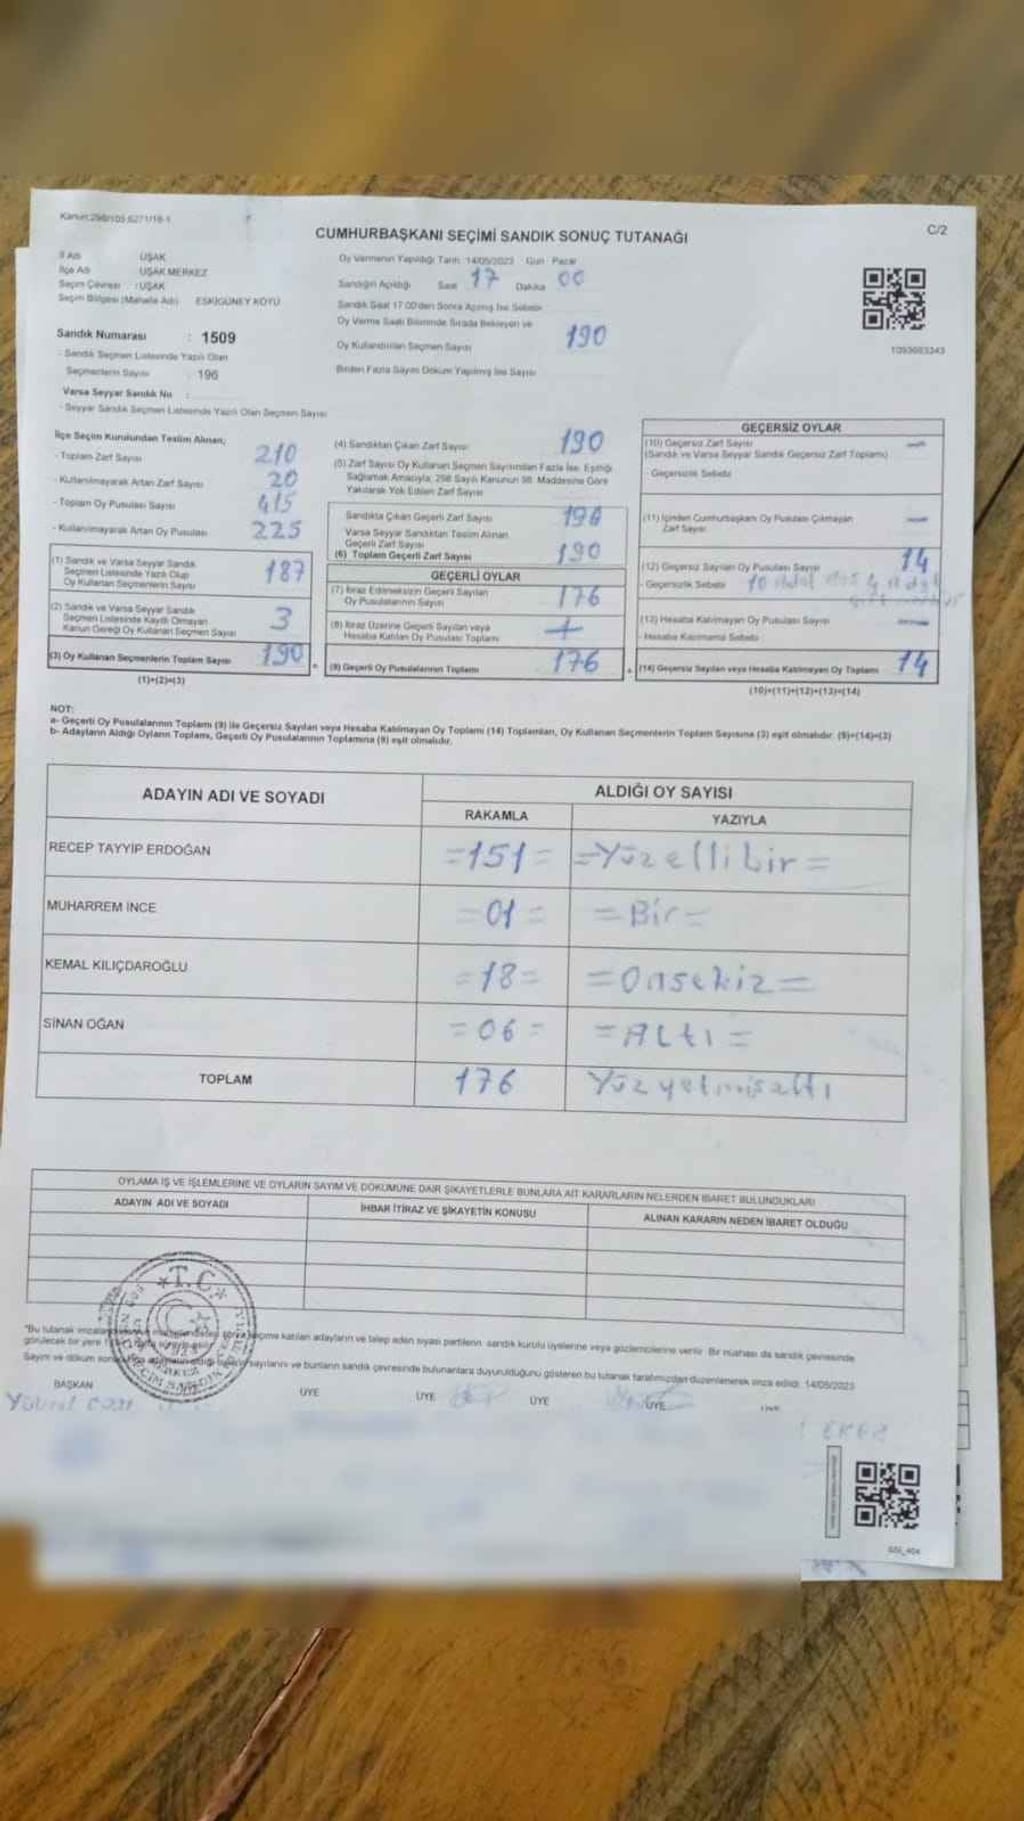 C/2
CUMHURBAŞKANI SEÇİMİ SANDIK SONUÇ TUTANAĞI
İl Adı : UŞAK
İlçe Adı : UŞAK MERKEZ
Seçim Çevresi : UŞAK
Seçim Bölgesi (Mahalle Adı) : ESKİGÜNEY KÖYÜ
Sandık Numarası : 1509
- Sandık Seçmen Listesinde Yazılı Olan
Seçmenlerin Sayısı : 196
Varsa Seyyar Sandık No :
- Seyyar Sandık Seçmen Listesinde Yazılı Olan Seçmen Sayısı
Oy Vermenin Yapıldığı Tarih: 14/05/2023 Gün : Pazar
Sandığın Açıldığı Saat 17 Dakika 00
Sandık Saat 17.00'den Sonra Açılmış İse Sebebi
Oy Verme Saati Bitiminde Sırada Bekleyen ve
Oy Kullandırılan Seçmen Sayısı 190
Birden Fazla Sayım Döküm Yapılmış İse Sayısı
1093683343
İlçe Seçim Kurulundan Teslim Alınan;
- Toplam Zarf Sayısı 210
- Kullanılmayarak Artan Zarf Sayısı 20
- Toplam Oy Pusulası Sayısı 415
- Kullanılmayarak Artan Oy Pusulası 225
(1) Sandık ve Varsa Seyyar Sandık
Seçmen Listesinde Yazılı Olup
Oy Kullanan Seçmenlerin Sayısı 187
(2) Sandık ve Varsa Seyyar Sandık
Seçmen Listesinde Kayıtlı Olmayan
Kanun Gereği Oy Kullanan Seçmen Sayısı 3
(3) Oy Kullanan Seçmenlerin Toplam Sayısı 190
(1)+(2)=(3)
(4) Sandıktan Çıkan Zarf Sayısı 190
(5) Zarf Sayısı Oy Kullanan Seçmen Sayısından Fazla İse, Eşitliği
Sağlamak Amacıyla, 298 Sayılı Kanunun 98. Maddesine Göre
Yakılarak Yok Edilen Zarf Sayısı
Sandıkta Çıkan Geçerli Zarf Sayısı 190
Varsa Seyyar Sandıktan Teslim Alınan
Geçerli Zarf Sayısı
(6) Toplam Geçerli Zarf Sayısı 190
GEÇERLİ OYLAR
(7) İtiraz Edilmeksizin Geçerli Sayılan
Oy Pusulalarının Sayısı 176
(8) İtiraz Üzerine Geçerli Sayılan veya
Hesaba Katılan Oy Pusulası Toplamı
(9) Geçerli Oy Pusulalarının Toplamı 176
GEÇERSİZ OYLAR
(10) Geçersiz Zarf Sayısı —
(Sandık ve Varsa Seyyar Sandık Geçersiz Zarf Toplamı)
- Geçersizlik Sebebi
(11) İçinden Cumhurbaşkanı Oy Pusulası Çıkmayan
Zarf Sayısı —
(12) Geçersiz Sayılan Oy Pusulası Sayısı 14
- Geçersizlik Sebebi 10 4
(13) Hesaba Katılmayan Oy Pusulası Sayısı —
- Hesaba Katılmama Sebebi
(14) Geçersiz Sayılan veya Hesaba Katılmayan Oy Toplamı 14
(10)+(11)+(12)+(13)=(14)
NOT:
a- Geçerli Oy Pusulalarının Toplamı (9) ile Geçersiz Sayılan veya Hesaba Katılmayan Oy Toplamı (14) Toplamları, Oy Kullanan Seçmenlerin Toplam Sayısına (3) eşit olmalıdır. (9)+(14)=(3)
b- Adayların Aldığı Oyların Toplamı, Geçerli Oy Pusulalarının Toplamına (9) eşit olmalıdır.
ADAYIN ADI VE SOYADI
ALDIĞI OY SAYISI
RAKAMLA
YAZIYLA
RECEP TAYYİP ERDOĞAN =151= =Yüzellibir=
MUHARREM İNCE =01= =Bir=
KEMAL KILIÇDAROĞLU =18= =Onsekiz=
SİNAN OĞAN =06= =Altı=
TOPLAM 176 Yüzyetmişaltı
OYLAMA İŞ VE İŞLEMLERİNE VE OYLARIN SAYIM VE DÖKÜMÜNE DAİR ŞİKAYETLERLE BUNLARA AİT KARARLARIN NELERDEN İBARET BULUNDUKLARI
ADAYIN ADI VE SOYADI
İHBAR İTİRAZ VE ŞİKAYETİN KONUSU
ALINAN KARARIN NEDEN İBARET OLDUĞU
T.C.
*Bu tutanak seçime katılan adayların ve talep eden siyasi partilerin sandık kurulu üyelerine veya gözlemcilerine verilir. Bir nüshası da sandık çevresinde
görülecek bir yere
Sayım ve döküm sayılarını ve bunların sandık çevresinde bulunanlara duyurulduğunu gösteren bu tutanak tarafımızdan düzenlenerek imza edildi. 14/05/2023
BAŞKAN
ÜYE
ÜYE
ÜYE
ÜYE